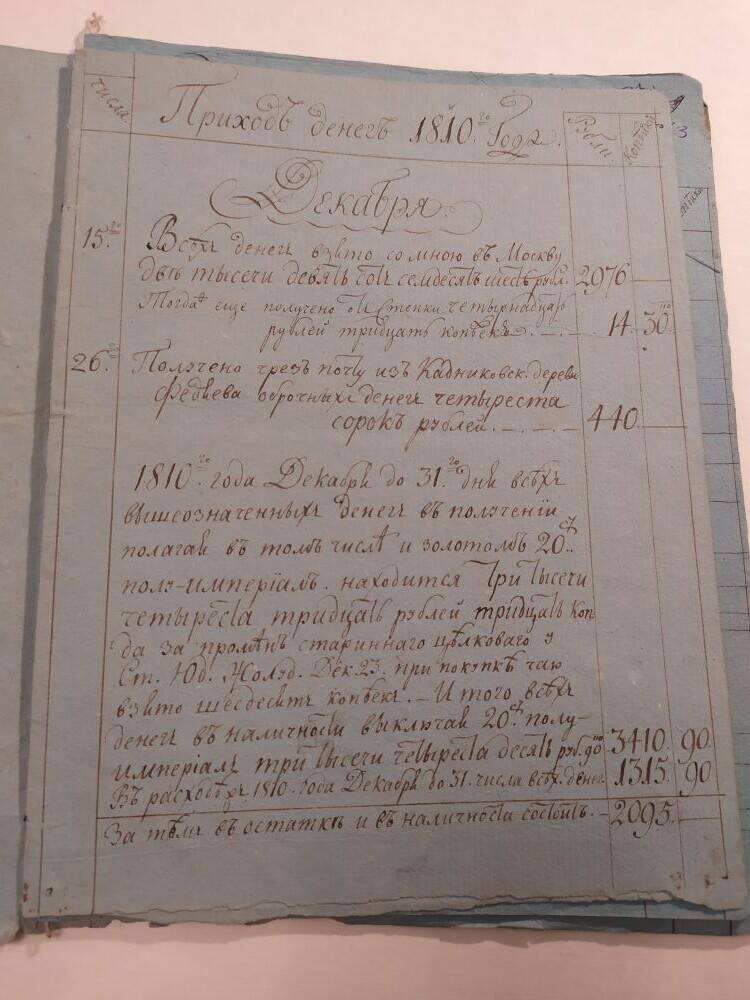 числа Приходъ денегъ 1810.го Года. Рубли. Копѣйки
Декабря.
15.го Всѣхъ денегъ взято со мною въ Москву
двѣ тысячи девять сотъ семдесятъ шесть рубл. 2976
Тогда еще получено отъ Степки четырнадцать
рублей тридцать копѣекъ. 14. 30.
26.го Получено чрезъ почту изъ Кадниковск. дерев.
Федяева оброчныхъ денегъ четыреста
сорокъ рублей. 440.
1810.го года Декабря до 31.го дня всѣхъ
вышеозначенныхъ денегъ въ полученіи
полагая въ томъ числѣ и золотомъ 20.ть
полу-имперіалъ. находится три тысячи
четыреста тридцать рублей тридцать коп
да за промѣнъ стариннаго цѣлковаго у
Ст. Юд. Дек. 23. при покупкѣ чаю
взято шесдесятъ копѣекъ. Итого всѣхъ
денегъ въ наличности выключая 20.ть полу-
имперіалъ три тысячи четыреста десять руб. 90 3410. 90.
Въ расходѣхъ 1810. года Декабря до 31. числа всѣхъ денег. 1315. 90
За тѣмъ въ остаткѣ и въ наличности состоитъ. 2095.